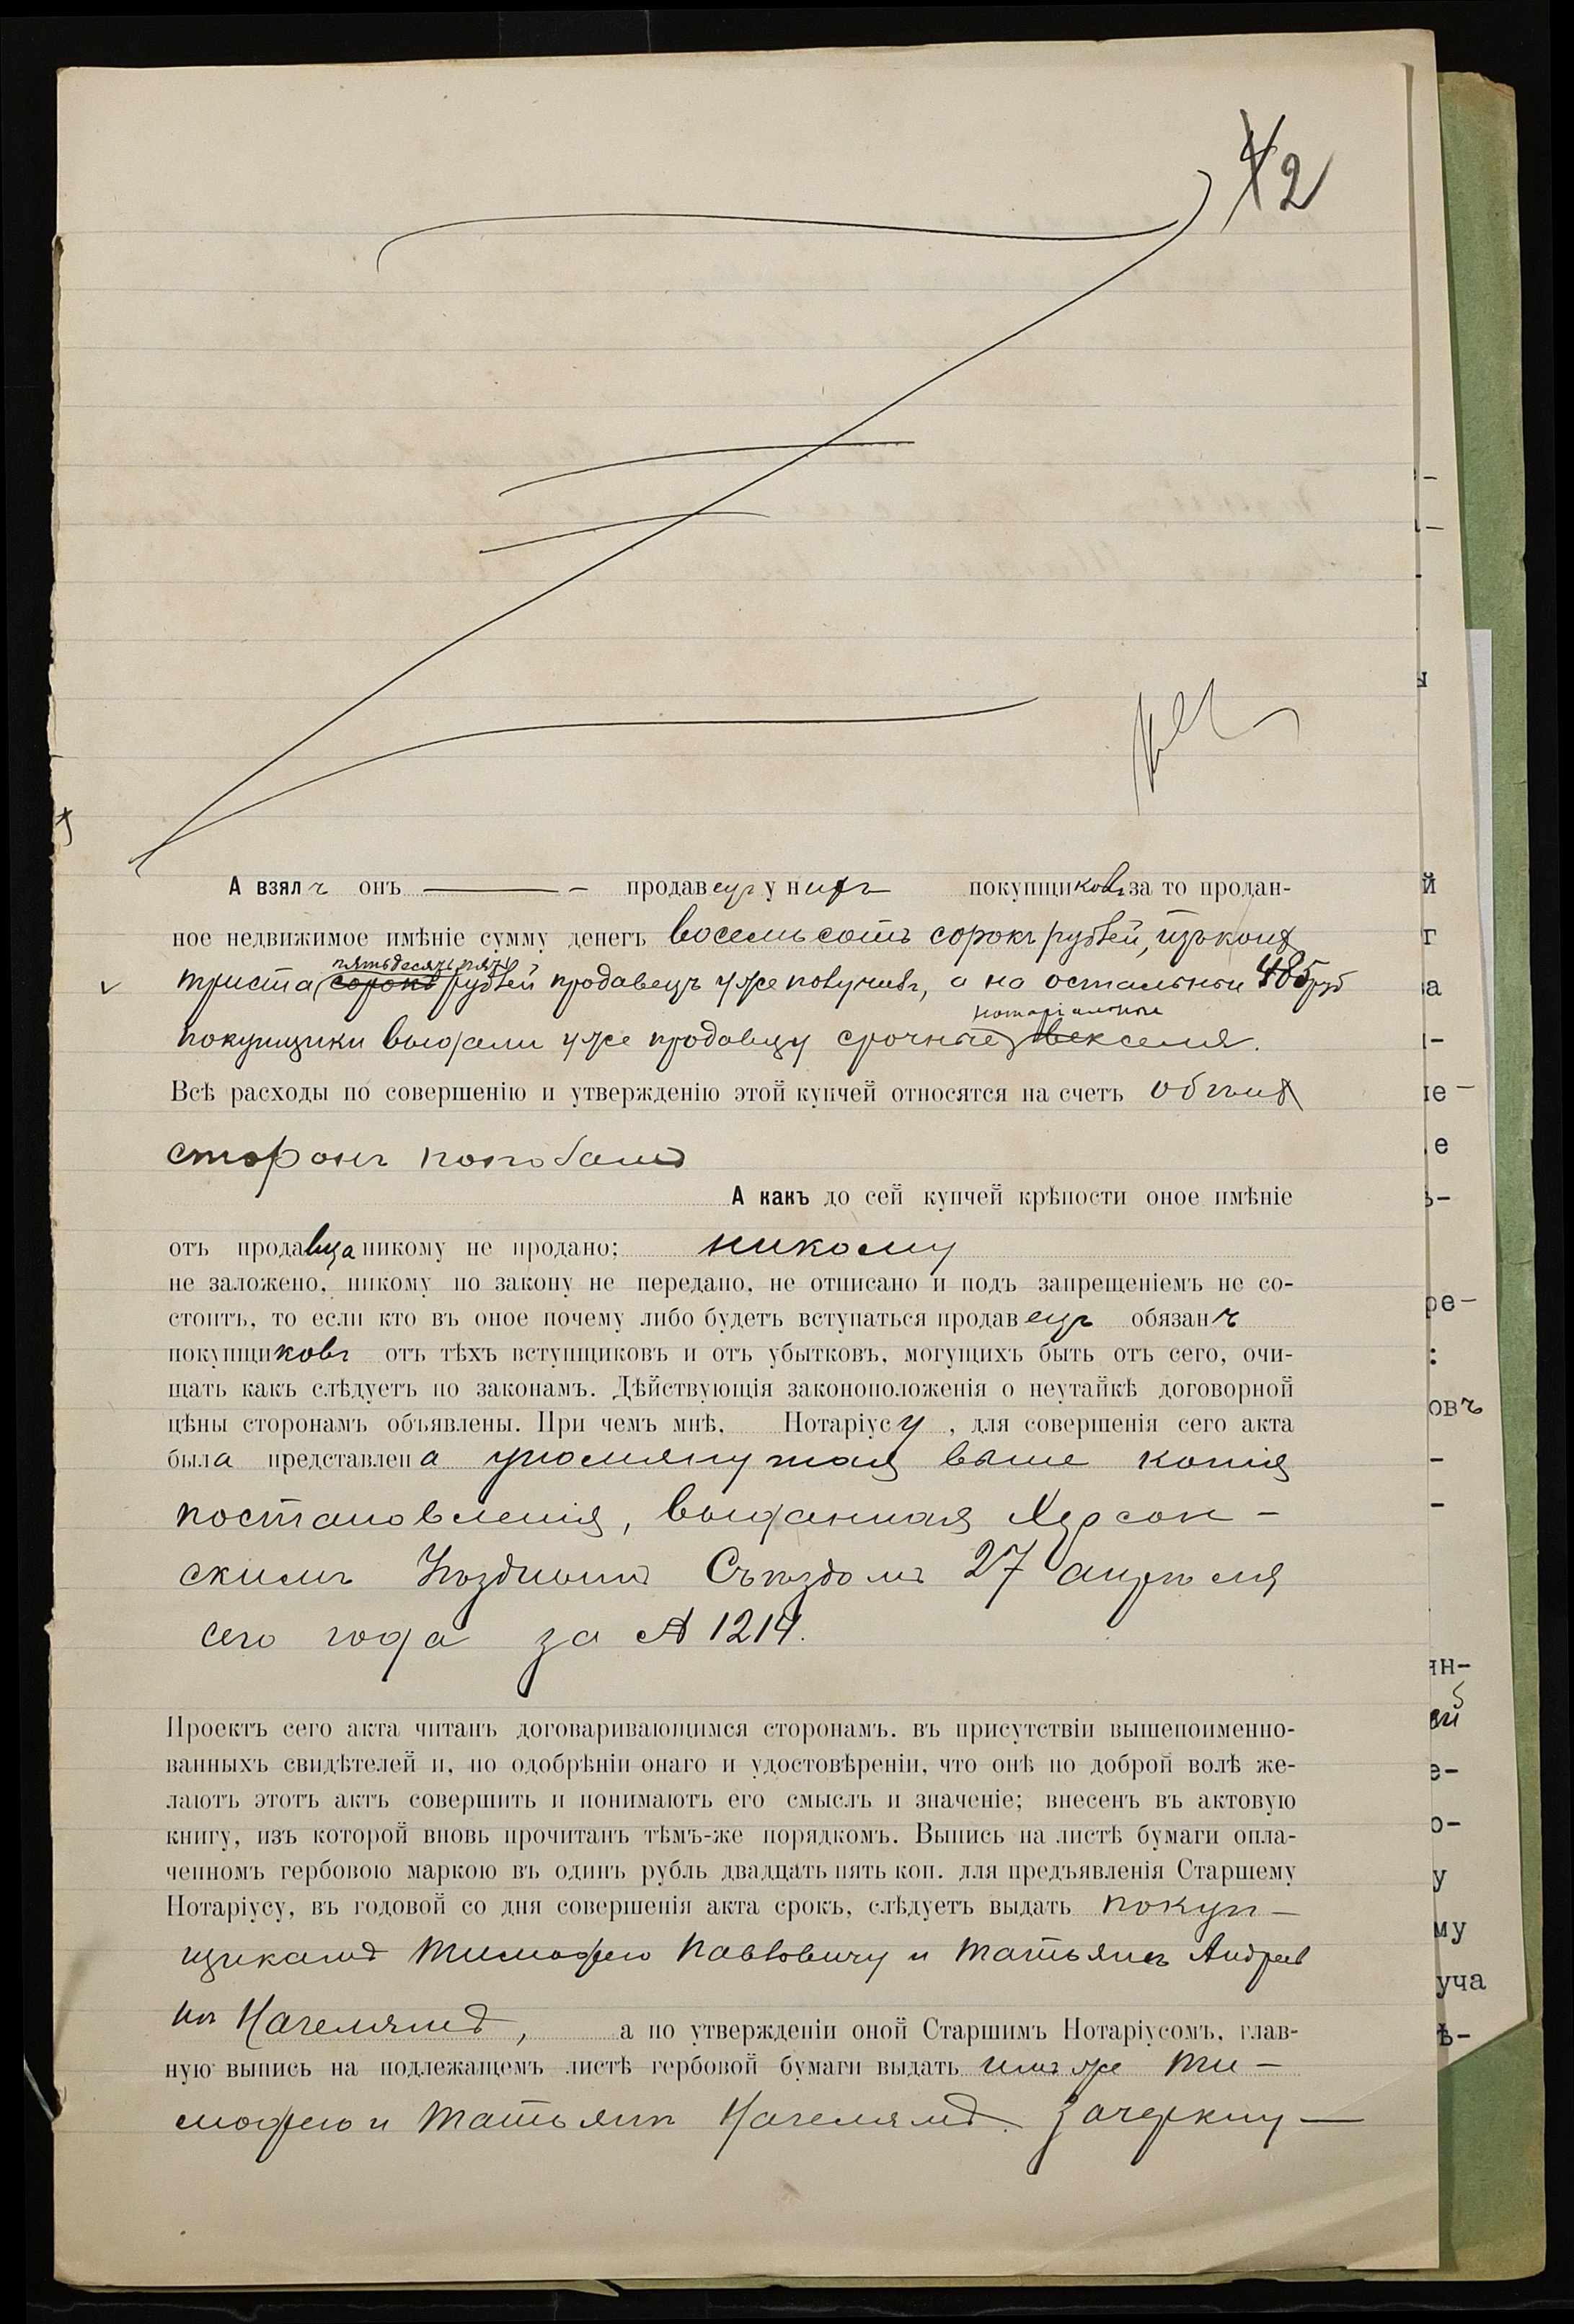 2
А взялъ онъ — продавецъ у нихъ покупщиковъ за то продан-
ное недвижимое имѣніе сумму денегъ восемьсотъ сорокъ рублей, изъ коихъ
пятьдесятъ пять
триста сорокъ рублей продавецъ уже получилъ, а на остальныи 485 руб
нотаріальные
покупщики выдали уже продавцу срочные векселя.
Всѣ расходы по совершенію и утвержденію этой купчей относятся на счетъ обѣихъ
сторонъ пополамъ
А какъ до сей купчей крѣпости оное имѣніе
отъ продавца никому не продано; никому
не заложено, никому по закону не передано, не отписано и подъ запрещеніемъ не со-
стоитъ, то если кто въ оное почему либо будетъ вступаться продавецъ обязанъ
покупщиковъ отъ тѣхъ вступщиковъ и отъ убытковъ, могущихъ быть отъ сего, очи-
щать какъ слѣдуетъ по законамъ. Дѣйствующія законоположенія о неутайкѣ договорной
цѣны сторонамъ объявлены. При чемъ мнѣ, Нотаріусу, для совершенія сего акта
была представлена упомянутая выше копія
постановленія, выданная Херсон-
скимъ Уѣзднымъ Съѣздомъ 27 апрѣля
сего года за № 1214.
Проектъ сего акта читанъ договаривающимся сторонамъ. въ присутствіи вышепоименно-
ванныхъ свидѣтелей и, по одобрѣніи онаго и удостовѣреніи, что онѣ по доброй волѣ же-
лаютъ этотъ актъ совершить и понимаютъ его смыслъ и значеніе; внесенъ въ актовую
книгу, изъ которой вновь прочитанъ тѣмъ-же порядкомъ. Выпись на листѣ бумаги опла-
ченномъ гербовою маркою въ одинъ рубль двадцать пять коп. для предъявленія Старшему
Нотаріусу, въ годовой со дня совершенія акта срокъ, слѣдуетъ выдать покуп-
щикамъ Тимофею Павловичу и Татьянѣ Андреев
нѣ Нагелямъ, а по утвержденіи оной Старшимъ Нотаріусомъ, глав-
ную выпись на подлежащемъ листѣ гербовой бумаги выдать имъ же Ти-
мофею и Татьянѣ Нагелямъ. Зачеркну-